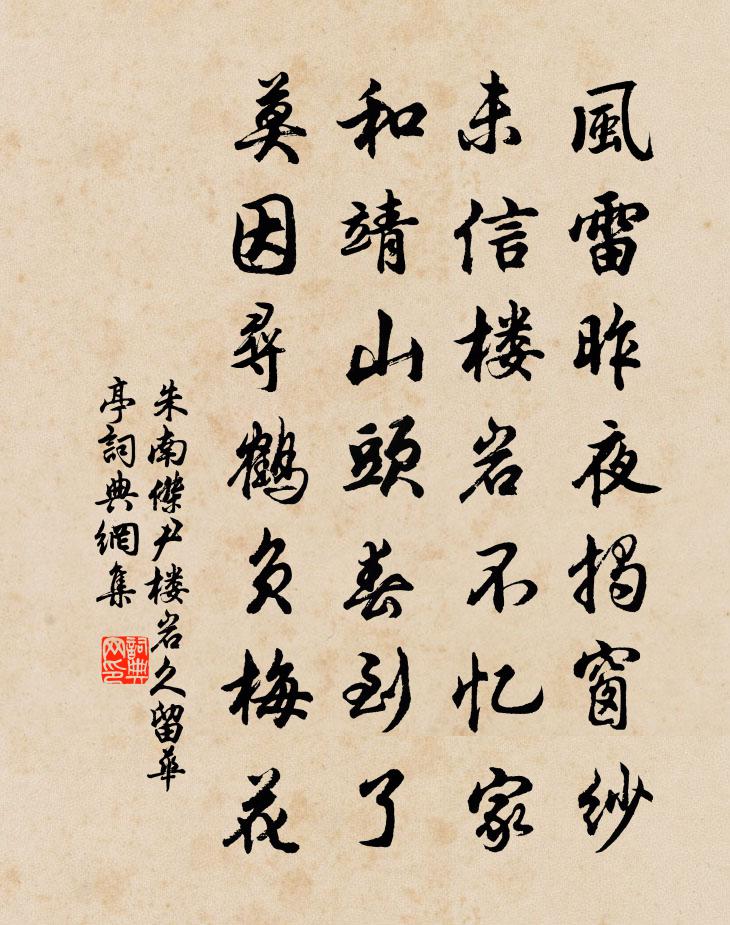 風雷昨夜揭窗紗
未信楼岩不忆家
和靖山頭春到了
莫因尋鶴负梅花
朱南傑尹楼岩久留華
亭詞典網集
詞典
网印